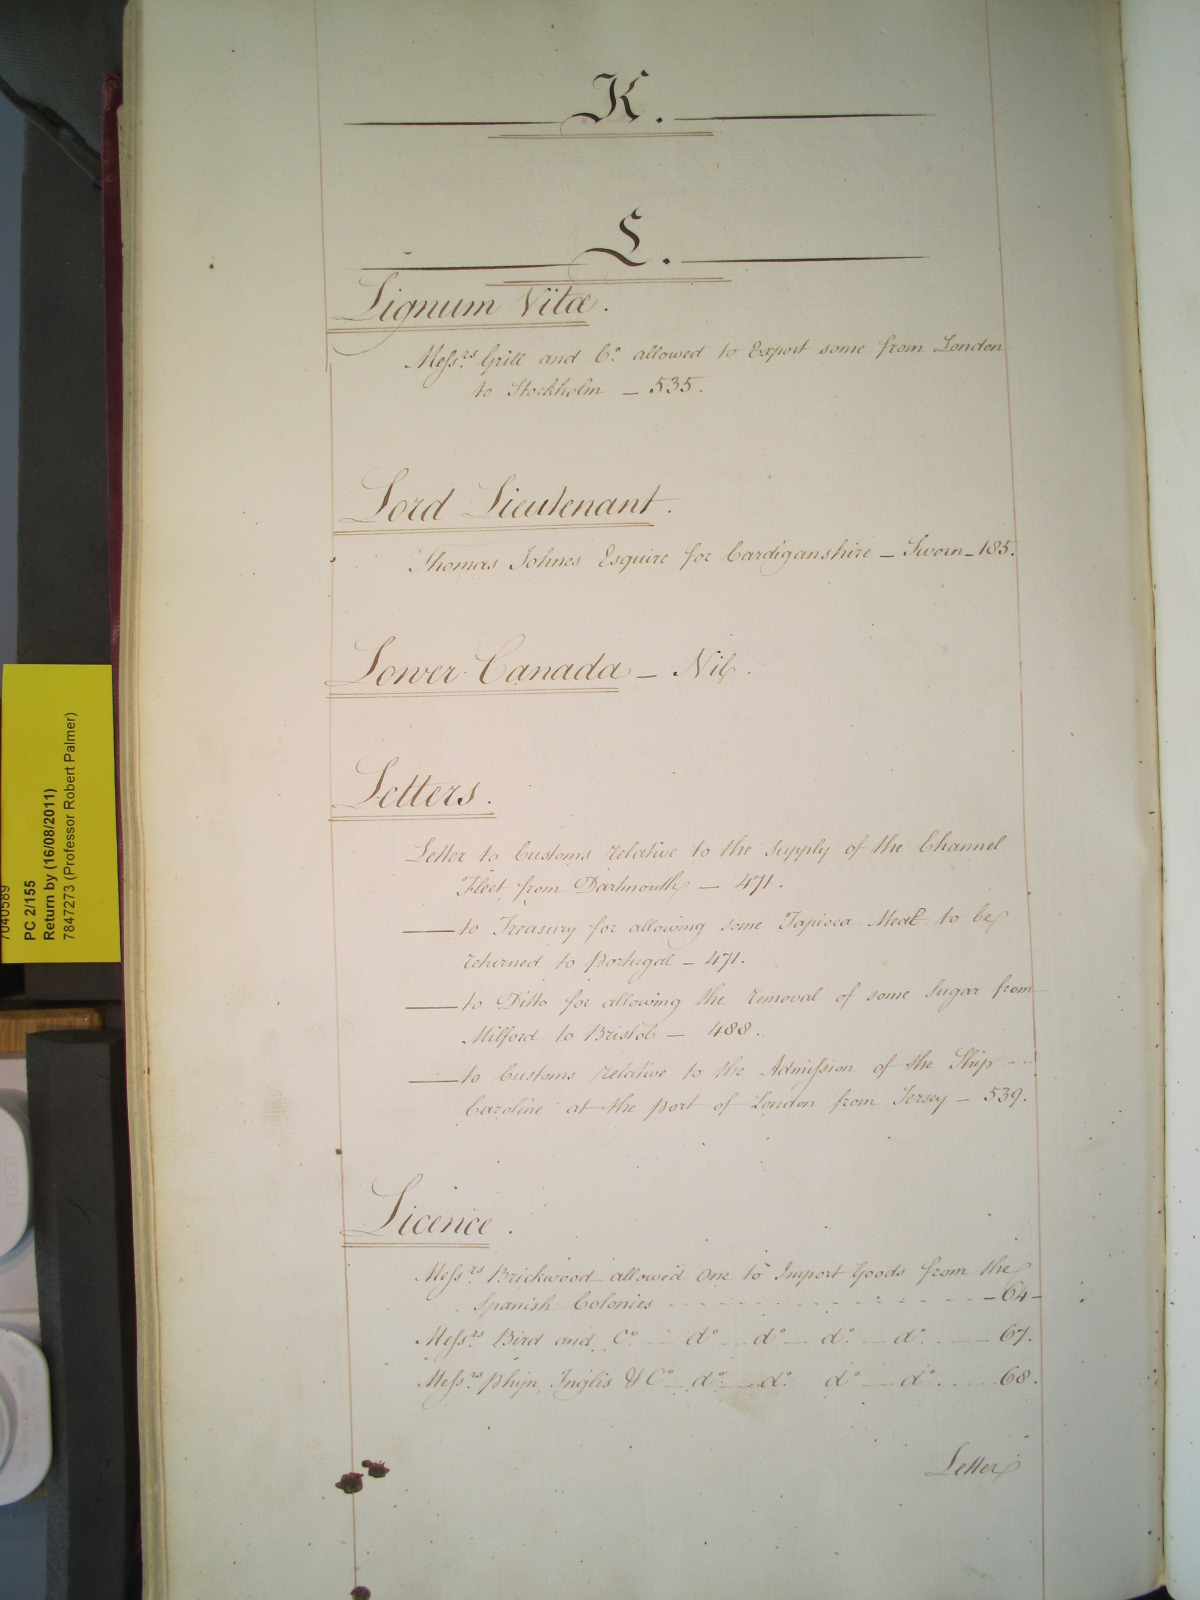 K.
L.
Lignum Vitæ.
Messrs. Grill and Co. allowed to Export some from London
to Stockholm — 535.
Lord Lieutenant.
Thomas Johnes Esquire for Cardiganshire — Sworn — 185.
Lower Canada — Nil.
Letters.
Letter to Customs relative to the Supply of the Channel
Fleet from Dartmouth — 471.
—— to Treasury for allowing some Tapioca Meal to be
returned to Portugal — 471.
—— to Ditto for allowing the removal of some Sugar from
Milford to Bristol — 488.
—— to Customs relative to the Admission of the Ship
Caroline at the port of London from Jersey — 539.
Licence.
Messrs. Brickwood allowed one to Import Goods from the
Spanish Colonies - - - - - - - - - - — 64 —
Messrs. Bird and Co. — do. — do. — do. — do. — 67.
Messrs. Phyn, Inglis & Co. — do. — do. do. — do. — 68.
Letter
7040589
PC 2/155
Return by (16/08/2011)
7847273 (Professor Robert Palmer)